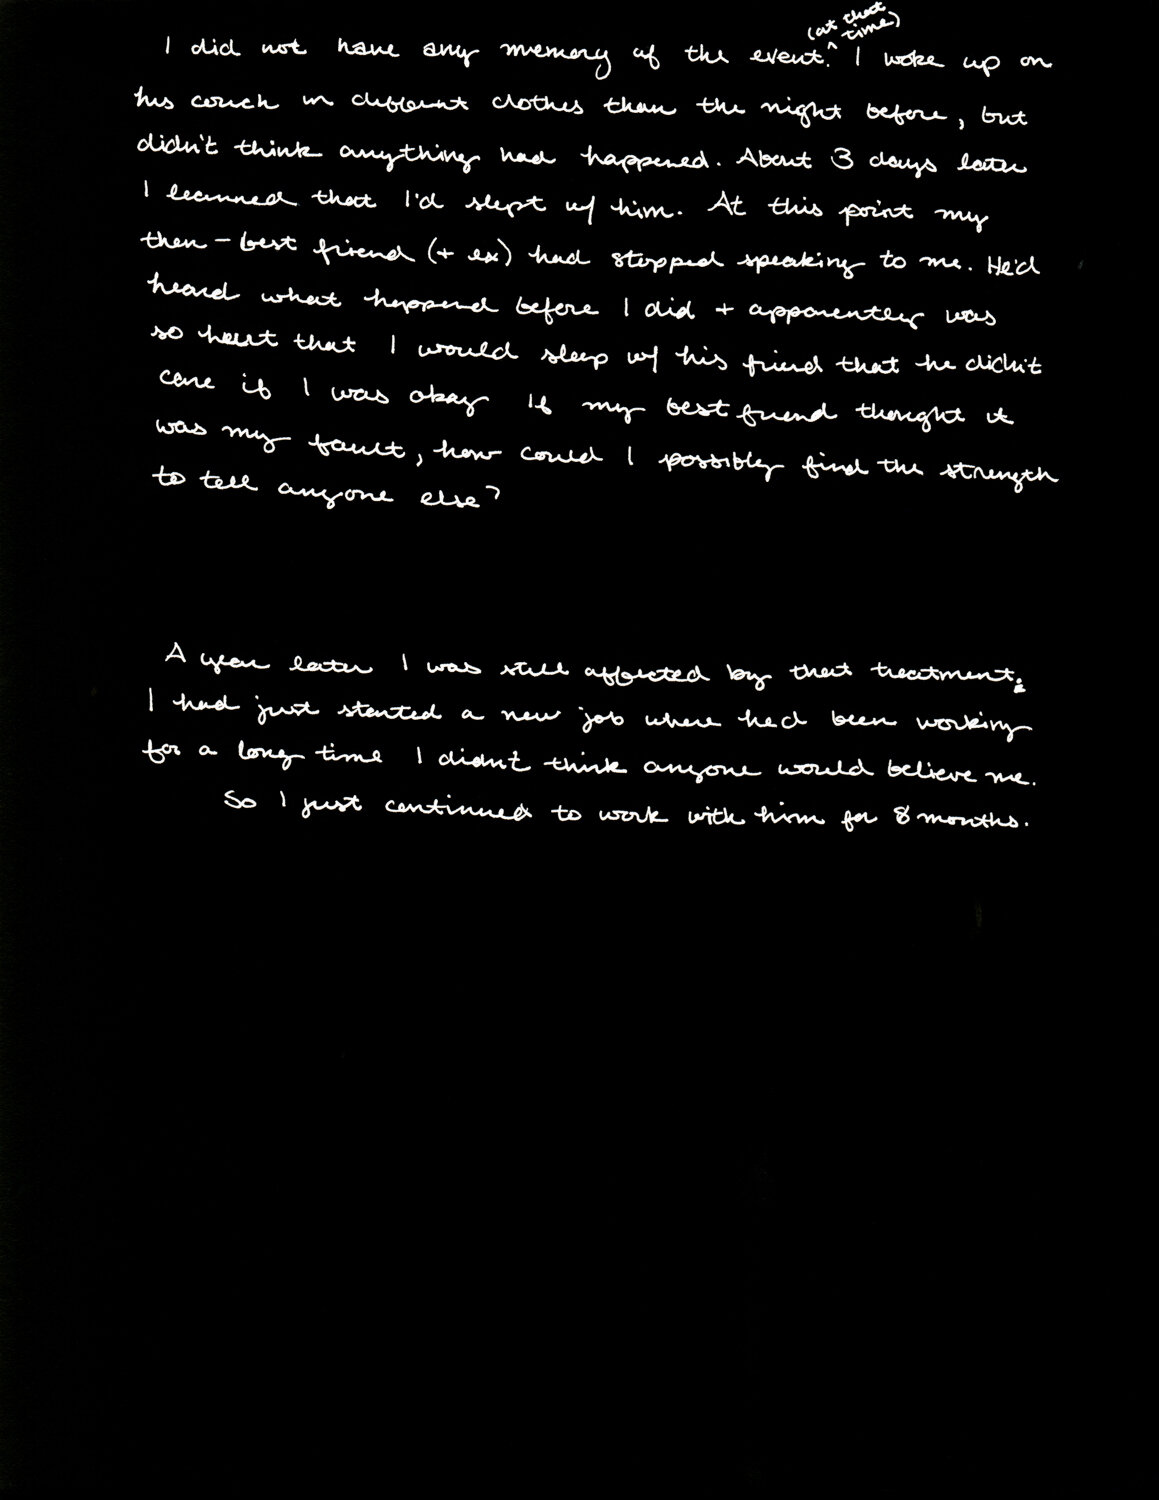 (at that
time)
I did not have any memory of the event.^ I woke up on
his couch in different clothes than the night before, but
didn't think anything had happened. About 3 days later
I learned that I'd slept w/ him. At this point my
then-best friend (+ ex) had stopped speaking to me. He'd
heard what happened before I did + apparently was
so hurt that I would sleep w/ his friend that he didn't
care if I was okay If my best friend thought it
was my fault, how could I possibly find the strength
to tell anyone else?
A year later I was still affected by that treatment:
I had just started a new job where he'd been working
for a long time I didn't think anyone would believe me.
So I just continued to work with him for 8 months.